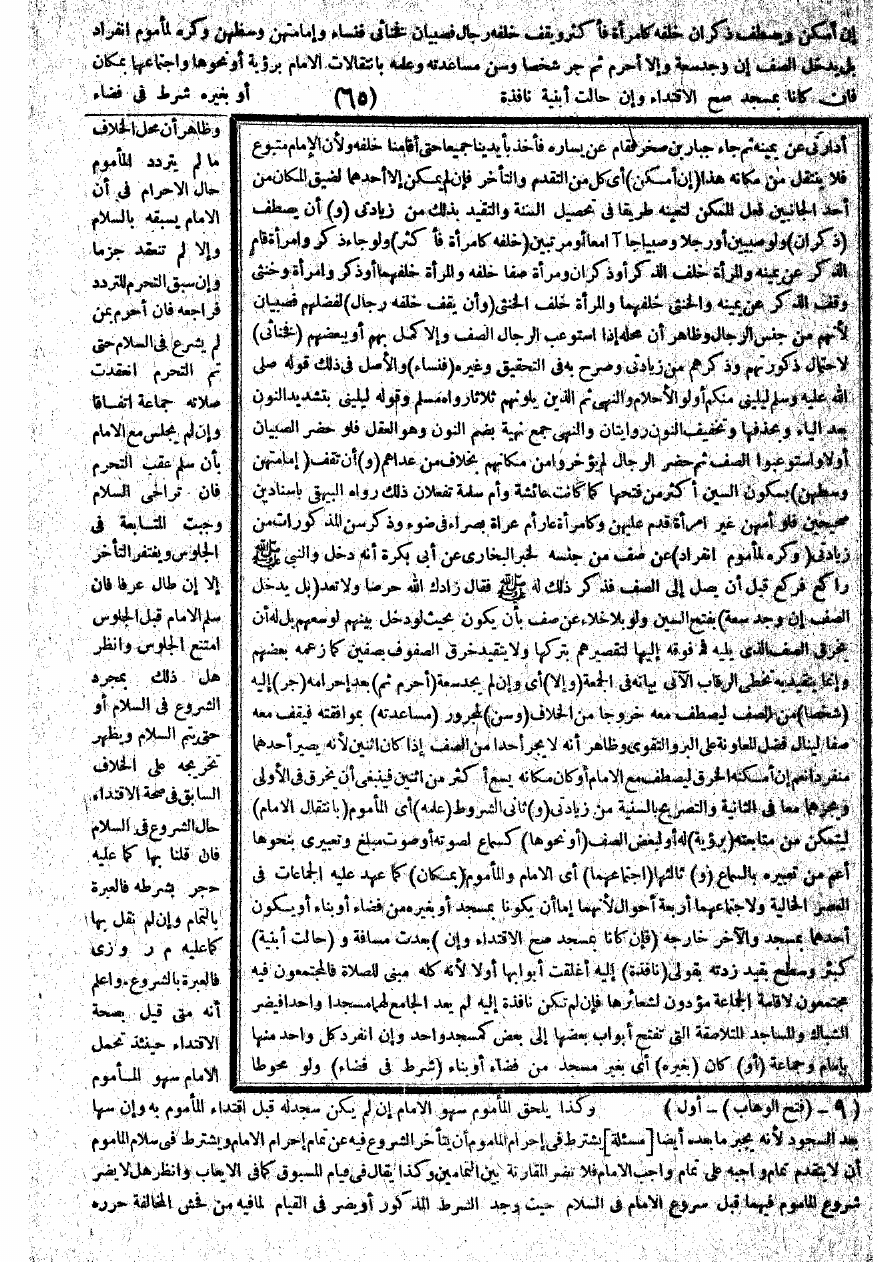 إن أمكن ويصطف ذكران خلفه كامرأة فأكثر ويقف خلفه رجال فصبيان فخناثى فنساء وإمامتهن وسطهن وكره لمأموم انفراد
بل يدخل الصف إن وجد سعة وإلا أحرم ثم جر شخصا وسن مساعدته وعلمه بانتقالات الامام برؤية أو نحوها واجتماعها بمكان
فان كانا بمسجد صح الاقتداء وإن حالت أبنية نافذة (٦٥) أو بغيره شرط فى فضاء
أدارنى عن يمينه ثم جاء جبار بن صخر فقام عن يساره فأخذ بأيدينا جميعا حتى أقامنا خلفه ولأن الإمام متبوع
فلا ينتقل من مكانه هذا (إن أمكن) أى كل من التقدم والتأخر فإن لم يمكن إلا أحدهما لضيق المكان من
أحد الجانبين فعل الممكن لتعينه طريقا فى تحصيل السنة والتقيد بذلك من زيادتى (و) أن يصطف
(ذكران) ولو صبيين أو رجلا وصبيا جاآ معا أو مرتبين (خلفه كامرأة فأكثر) ولو جاء ذكر وامرأة قام
الذكر عن يمينه والمرأة خلف الذكر أو ذكران وامرأة صفا خلفه والمرأة خلفهما أو ذكر وامرأة وخنثى
وقف الذكر عن يمينه والخنثى خلفهما والمرأة خلف الخنثى (وأن يقف خلفه رجال) لفضلهم فصبيان
لأنهم من جنس الرجال وظاهر أن محله إذا استوعب الرجال الصف وإلا كمل بهم أو ببعضهم (فخناثى)
لاحتمال ذكورتهم وذكرهم من زيادتى وصرح به فى التحقيق وغيره (فنساء) والأصل فى ذلك قوله صلى
الله عليه وسلم ليلينى منكم أولو الأحلام والنهى ثم الذين يلونهم ثلاثا رواه مسلم وقوله ليلينى بتشديد النون
بعد الياء وبحذفها وتخفيف النون روايتان والنهى جمع نهية بضم النون وهو العقل فلو حضر الصبيان
أولا واستوعبوا الصف ثم حضر الرجال لم يؤخروا من مكانهم بخلاف من عداهم (و) أن تقف (إمامتهن
وسطهن) بسكون السين أكثر من فتحها كما كانت عائشة وأم سلمة تفعلان ذلك رواه البيهقى باسنادين
صحيحين فلو أمهن غير امرأة قدم عليهن وكامرأة عار أم عراة بصراء فى ضوء وذكر سن المذكورات من
زيادتى (وكره لمأموم انفراد) عن صف من جنسه لخبر البخارى عن أبى بكرة أنه دخل والنبى ﷺ
راكع فركع قبل أن يصل إلى الصف فذكر ذلك له ﷺ فقال زادك الله حرصا ولا تعد (بل يدخل
الصف إن وجد سعة) بفتح السين ولو بلا خلاء عن صف بأن يكون بحيث لو دخل بينهم لوسعهم بل له أن
يخرق الصف الذى يليه فما فوقه إليها لتقصيرهم بتركها ولا يتقيد خرق الصفوف بصفين كما زعمه بعضهم
وإنما يتقيد به تخطى الرقاب الآتى بيانه فى الجمعة (وإلا) أى وإن لم يجد سعة (أحرم ثم) بعد إحرامه (جر) إليه
(شخصا) من الصف ليصطف معه خروجا من الخلاف (وسن) لمجرور (مساعدته) بموافقته فيقف معه
صفا لينال فضل المعاونة على البر والتقوى وظاهر أنه لا يجر أحدا من الصف إذا كان اثنين لأنه يصير أحدهما
منفردا نعم إن أمكنه الخرق ليصطف مع الامام أو كان مكانه يسع أكثر من اثنين فينبغى أن يخرق فى الأولى
ويجرهما معا فى الثانية والتصريح بالسنية من زيادتى (و) ثانى الشروط (علمه) أى المأموم (بانتقال الامام)
ليتمكن من متابعته (برؤية) له أو لبعض الصف (أو نحوها) كسماع لصوته أو صوت مبلغ وتعبيرى بنحوها
أعم من تعبيره بالسماع (و) ثالثها (اجتماعهما) أى الامام والمأموم (بمكان) كما عهد عليه الجماعات فى
العصر الخالية ولاجتماعهما أربعة أحوال لأنهما إما أن يكونا بمسجد أو بغيره من فضاء أو بناء أو يكون
أحدهما بمسجد والآخر خارجه (فإن كانا بمسجد صح الاقتداء وإن) بعدت مسافة و (حالت أبنية)
كبئر وسطح بقيد زدته بقولى (نافذة) إليه أغلقت أبوابها أولا لأنه كله مبنى للصلاة فالمجتمعون فيه
مجتمعون لاقامة الجماعة مؤدون لشعائرها فإن لم تكن نافذة إليه لم يعد الجامع لهما مسجدا واحدا فيضر
الشباك والمساجد المتلاصقة التى تفتح أبواب بعضها إلى بعض كمسجد واحد وإن انفرد كل واحد منها
بإمام وجماعة (أو) كان (بغيره) أى بغير مسجد من فضاء أو بناء (شرط فى فضاء) ولو محوطا
وظاهر أن محل الخلاف
ما لم يتردد المأموم
حال الاحرام فى أن
الامام يسبقه بالسلام
وإلا لم تنعقد جزما
وإن سبق التحرم للتردد
فراجعه فان أحرم بمن
لم يشرع فى السلام حتى
تم التحرم انعقدت
صلاته جماعة اتفاقا
وإن لم يجلس مع الامام
بأن سلم عقب التحرم
فان تراخى السلام
وجبت المتابعة فى
الجلوس ويغتفر التأخر
إلا إن طال عرفا فان
سلم الامام قبل الجلوس
امتنع الجلوس وانظر
هل ذلك بمجرد
الشروع فى السلام أو
حتى يتم السلام ويظهر
تخريجه على الخلاف
السابق فى صحة الاقتداء
حال الشروع فى السلام
فان قلنا بها كما عليه
حجر بشرطه فالعبرة
بالتمام وإن لم نقل بها
كما عليه م ر وزى
فالعبرة بالشروع، واعلم
أنه متى قيل بصحة
الاقتداء حينئذ تحمل
الامام سهو المأموم
(٩ - (فتح الوهاب) - أول) وكذا يلحق المأموم سهو الامام إن لم يكن سجد له قبل اقتداء المأموم به وإن سها
بعد السجود لأنه يجبر ما بعده أيضا [مسئلة] يشترط فى إحرام المأموم أن يتأخر الشروع فيه عن تمام إحرام الامام ويشترط فى سلام المأموم
أن لا يتقدم تمام واجبه على تمام واجب الامام فلا تضر المقارنة بين التمامين وكذا يقال فى قيام المسبوق كما فى الايعاب وانظر هل لا يضر
شروع المأموم فيهما قبل شروع الامام فى السلام حيث وجد الشرط المذكور أو يضر فى القيام لما فيه من فحش المخالفة حرره